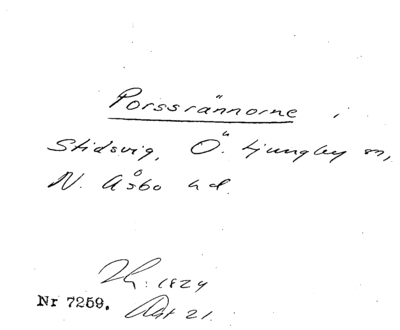 Porssrännorne i
Stidsvig, Ö. Ljungby sn,
N. Åsbo hd.
1824
Nr 7259. Akt 21.